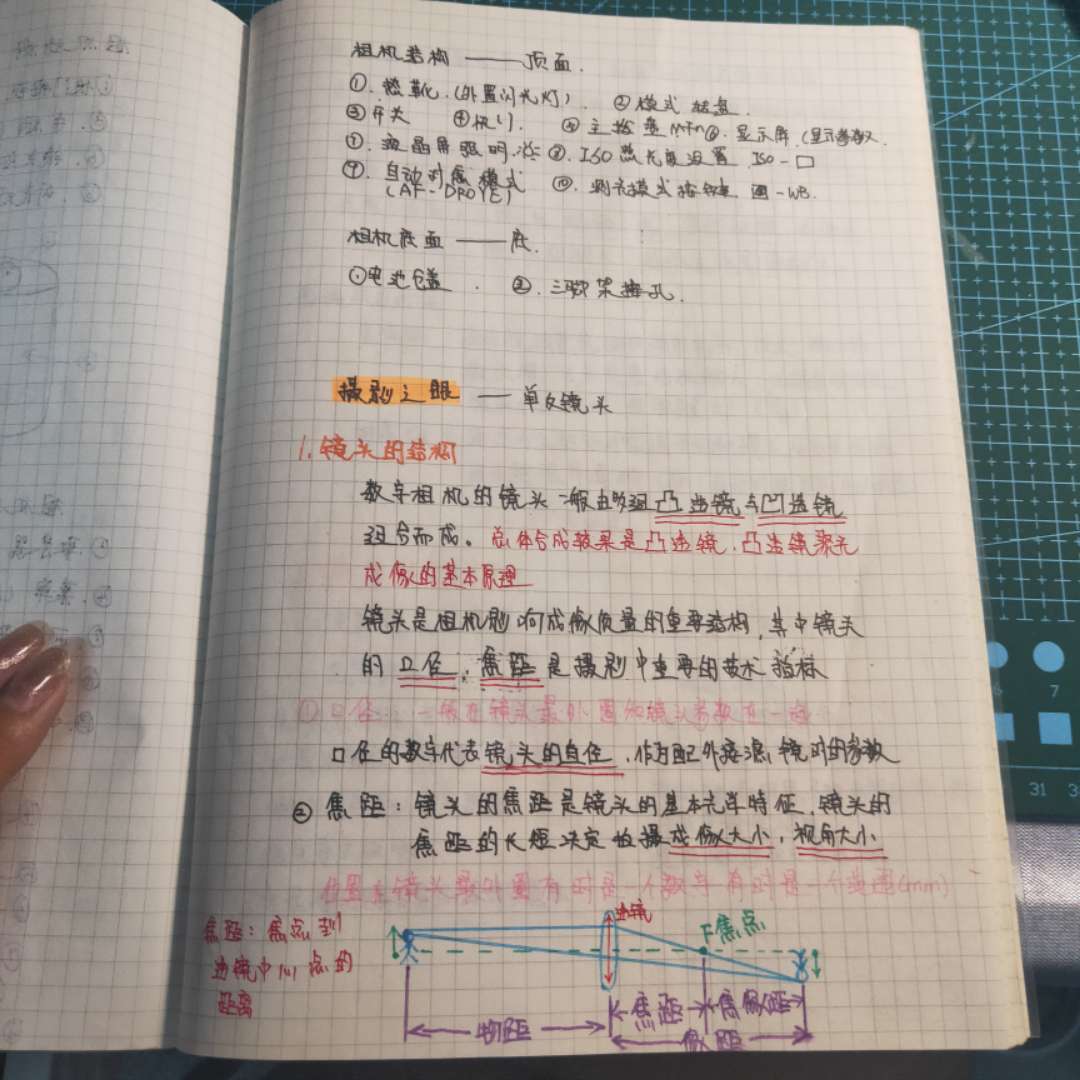 相机结构——顶面.
①.热靴.(外置闪光灯). ②模式转盘.
③开关 ④快门. ⑤主拨盘 M-Fn⑥.显示屏.(显示参数).
⑦.液晶屏照明. ⑧.ISO感光度设置 ISO-
⑨.自动对焦模式 ⑩.测光模式按键 -WB.
(AF-DROVE)
相机底面——底.
①电池仓盖. ②.三脚架接孔.
摄影之眼——单反镜头
1.镜头的结构
数字相机的镜头一般由多组凸透镜与凹透镜
组合而成。总体合成效果是凸透镜.凸透镜聚光
成像的基本原理
镜头是相机影响成像质量的重要结构,其中镜头
的口径、焦距是摄影中重要的技术指标
①口径:一般在镜头最外圈和镜头参数在一起
口径的数字代表镜头的直径.作为配外接滤镜时的参数
②焦距:镜头的焦距是镜头的基本光学特征.镜头的
焦距的长短决定拍摄成像大小,视角大小
位置在镜头最外圈有时是一个数字有时是一个范围(mm)
焦距:焦点到
透镜中心点的
距离
透镜
F焦点
焦距 焦像距
物距 像距